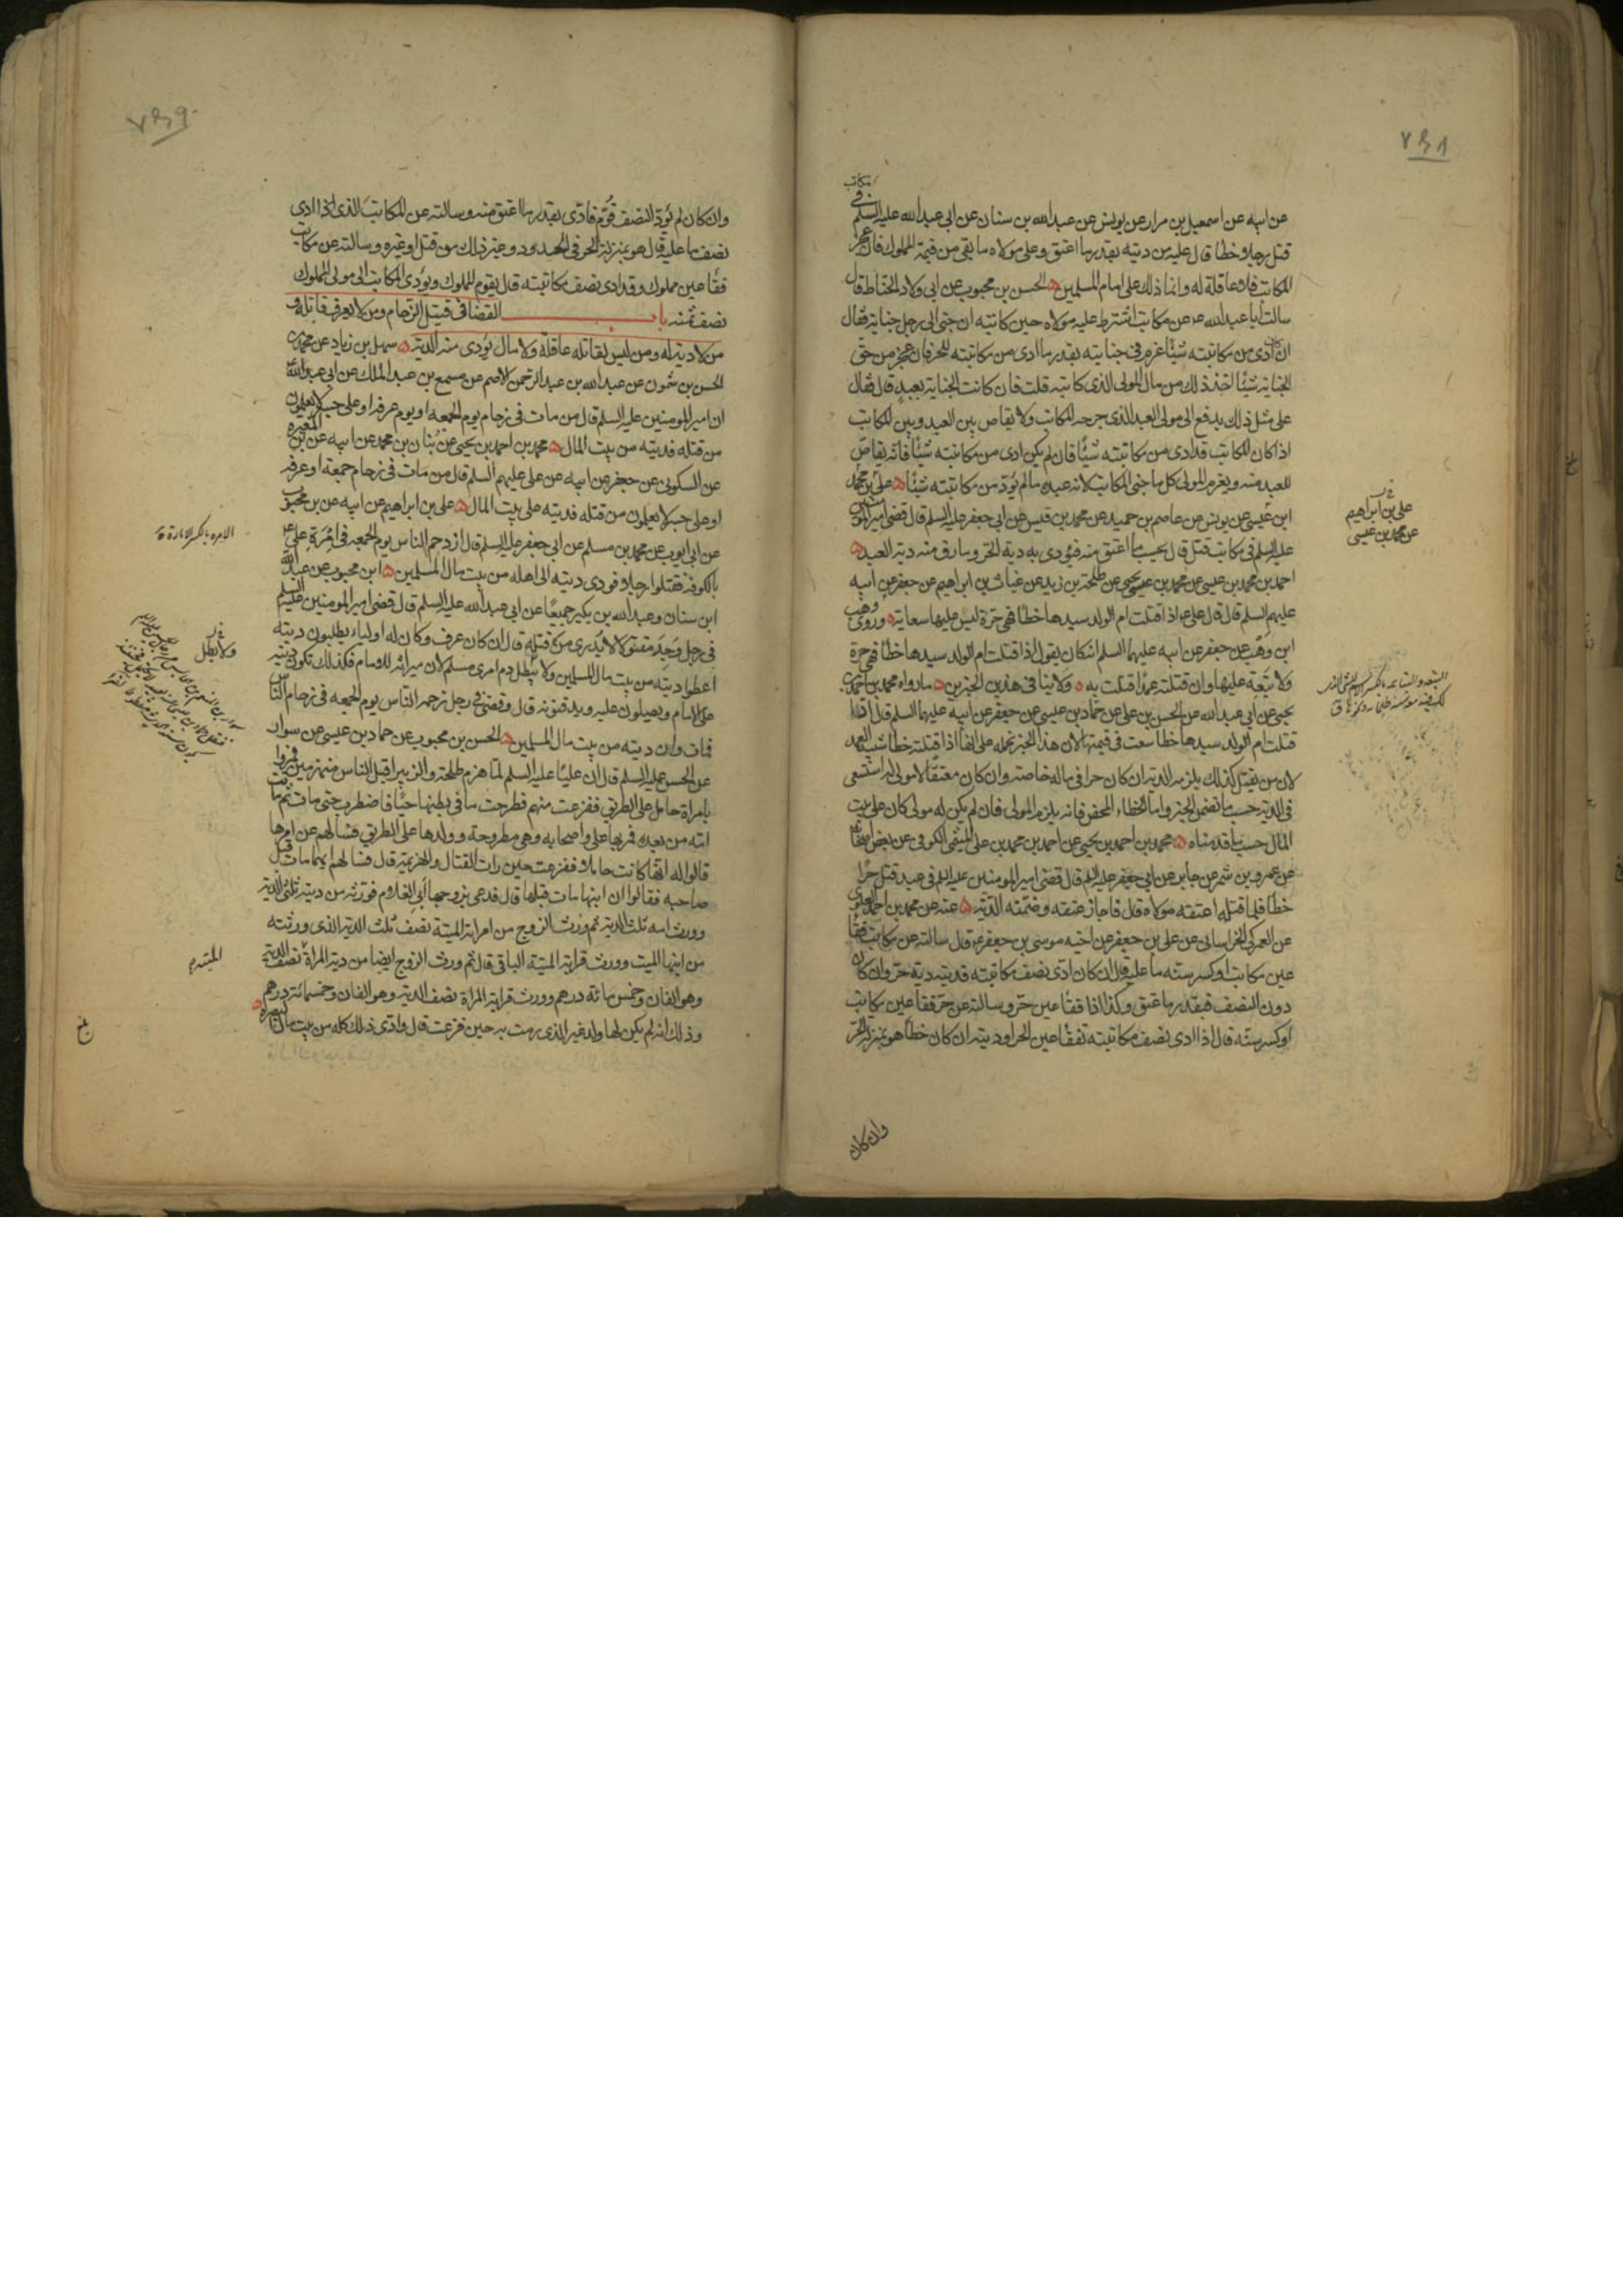 ٧٥٨
مكاتب
عن ابيه عن اسمعيل بن مرار عن يونس عن عبدالله بن سنان عن ابى عبدالله عليه السلم فى
قتل رجلا خطأ قال عليه من ديته بقدر ما اعتق وعلى مولاه ما بقى من قيمة المملوك فان عجز
المكاتب فلا عاقلة له وانما ذلك على امام المسلمين ه الحسن بن محبوب عن ابى ولاد الحناط قال
سالت أبا عبدالله ع عن مكاتب اشترط عليه مولاه حين كاتبه ان جنى الى رجل جناية فقال
ان كان أدى من مكاتبته شيئا غرم فى جنايته بقدر ما ادى من مكاتبته للحر فان عجز من حق
الجناية شيئا اخذ ذلك من مال المولى الذى كاتبه قلت فان كانت الجناية بعبد قال فقال
على مثل ذلك يدفع الى مولى العبد الذى جرحه المكاتب ولا يقاص بين العبد وبين المكاتب
اذا كان المكاتب قد ادى من مكاتبته شيئا فان لم يكن ادى من مكاتبته شيئا فانه يقاص
للعبد منه ويغرم المولى كل ما جنى المكاتب لانه عبده ما لم يؤد من مكاتبته شيئا ه على بن محمد
ابن عيسى عن يونس عن عاصم بن حميد عن محمد بن قيس عن ابى جعفر عليه السلم قال قضى امير المومنين
عليه السلم فى مكاتب قتل قال يحسب ما اعتق منه فيؤدى به دية الحر وما رق منه دية العبد ه
احمد بن محمد بن عيسى عن محمد بن يحيى عن طلحة بن زيد عن غياث بن ابراهيم عن جعفر عن ابيه
عليهم السلم قال قال على ع اذا قتلت ام الولد سيدها خطأ فهى حرة ليس عليها سعاية ه وروى وهب
ابن وهب عن جعفر عن ابيه عليهما السلم انه كان يقول اذا قتلت ام الولد سيدها خطأ فهى حرة
ولا تبعة عليها وان قتلته عمدا قتلت به ه ولا ينافى هذين الخبرين ه ما رواه محمد بن احمد بن
يحيى عن ابى عبدالله عن الحسن بن على عن حماد بن عيسى عن جعفر عن ابيه عليهما السلم قال اذا
قتلت ام الولد سيدها خطأ سعت فى قيمتها لان هذا الخبر نحمله على انها اذا قتلته خطأ شبيه العمد
لان من يقتل كذلك يلزمه الدية ان كان حرا فى ماله خاصة وان كان معتقا لا مولى له استسعى
فى الدية حسب ما تضمن الخبر واما الخطاء المحض فانه يلزم المولى فان لم يكن له مولى كان على بيت
المال حسب ما قدمناه ه محمد بن احمد بن يحيى عن احمد بن محمد بن على الميثمى الكوفى عن بعض اصحابنا
عن عمرو بن شمر عن جابر عن ابى جعفر عليه السلم قال قضى امير المومنين عليه السلم فى عبد قتل حرا
خطأ فلما قتله اعتقه مولاه قال فاجاز عتقه وضمنه الدية ه عنه عن محمد بن احمد العلوى
عن العمركى الخراسانى عن على بن جعفر عن اخيه موسى بن جعفر ع قال سالته عن مكاتب فقأ
عين مكاتب او كسر سنه ما عليه قال ان كان ادى نصف مكاتبته فديته دية حر وان كان
دون النصف فبقدر ما عتق وكذا اذا فقأ عين حر وسالته عن حر فقأ عين مكاتب
او كسر سنه قال اذا ادى نصف مكاتبته تفقأ عين الحر او ديته ان كان خطأ هو بمنزلة الحر
وان كان
على بن ابراهيم
عن محمد بن عيسى
٧٥٩
وان كان لم يؤد النصف قوم فادى بقدر ما اعتق منه وسالته عن المكاتب الذى اذا ادى
نصف ما عليه قال هو بمنزلة الحر فى الحدود وغير ذلك من قتل او غيره وسالته عن مكاتب
فقأ عين مملوك وقد ادى نصف مكاتبته قال يقوم المملوك ويؤدى المكاتب الى مولى المملوك
نصف ثمنه باب القضا فى قتيل الزحام ومن لا يعرف قاتله و
من لا دية له ومن ليس لقاتله عاقلة ولا مال يؤدى منه الدية ه سهل بن زياد عن محمد بن
الحسن بن شمون عن عبدالله بن عبد الرحمن الاصم عن مسمع بن عبد الملك عن ابى عبدالله ع
ان امير المومنين عليه السلم قال من مات فى زحام يوم الجمعه او يوم عرفه او على جسر لا يعلمون
من قتله فديته من بيت المال ه محمد بن احمد بن يحيى عن بنان بن محمد عن ابيه عن بن المغيره
عن السكونى عن جعفر عن ابيه عن على عليهم السلم قال من مات فى زحام جمعه او عرفه
او على جسر لا يعلمون من قتله فديته على بيت المال ه على بن ابراهيم عن ابيه عن بن محبوب
عن ابى ايوب عن محمد بن مسلم عن ابى جعفر عليه السلم قال ازدحم الناس يوم الجمعه فى امرة على ع
بالكوفة فقتلوا رجلا فودى ديته الى اهله من بيت مال المسلمين ه ابن محبوب عن عبدالله
ابن سنان وعبدالله بن بكير جميعا عن ابى عبدالله عليه السلم قال قضى امير المومنين عليه السلم
فى رجل وجد مقتولا لا يدرى من قتله قال ان كان عرف وكان له اولياء يطلبون ديته
اعطوا ديته من بيت مال المسلمين ولا يبطل دم امرى مسلم لان ميراثه للامام فكذلك تكون ديته
على الامام ويصلون عليه ويدفنونه قال وقضى فى رجل زحمه الناس يوم الجمعه فى زحام الناس
فمات وان ديته من بيت مال المسلمين ه الحسن بن محبوب عن حماد بن عيسى عن سوار
عن الحسن عليه السلم قال ان عليا عليه السلم لما هزم طلحة والزبير اقبل الناس منهزمين فمروا
بامراة حامل على الطريق ففزعت منهم فطرحت ما فى بطنها حيا فاضطرب حتى مات ثم ماتت
امه من بعده فمر بها على واصحابه وهى مطروحة وولدها على الطريق فسالهم عن امرها
قالوا له انها كانت حاملا ففزعت حين رات القتال والهزيمة قال فسالهم ايهما مات قبل
صاحبه فقالوا ان ابنها مات قبلها قال فدعى بزوجها أبى الغلام فورثه من ديته ثلثى الدية
وورث امه ثلث الدية ثم ورث الزوج من امراته الميتة نصف ثلث الدية الذى ورثته
من ابنها الميت وورث قرابة الميتة الباقى قال ثم ورث الزوج ايضا من دية المراة نصف الدية
وهو الفان وخمس مائة درهم وورث قرابة المراة نصف الدية وهو الفان وخمسمائة درهم
وذلك انه لم يكن لها ولد غير الذى رمت به حين فزعت قال وادى ذلك كله من بيت مال البصرة ه
الامره بالكسر الامارة
ولا يطل
الميتة